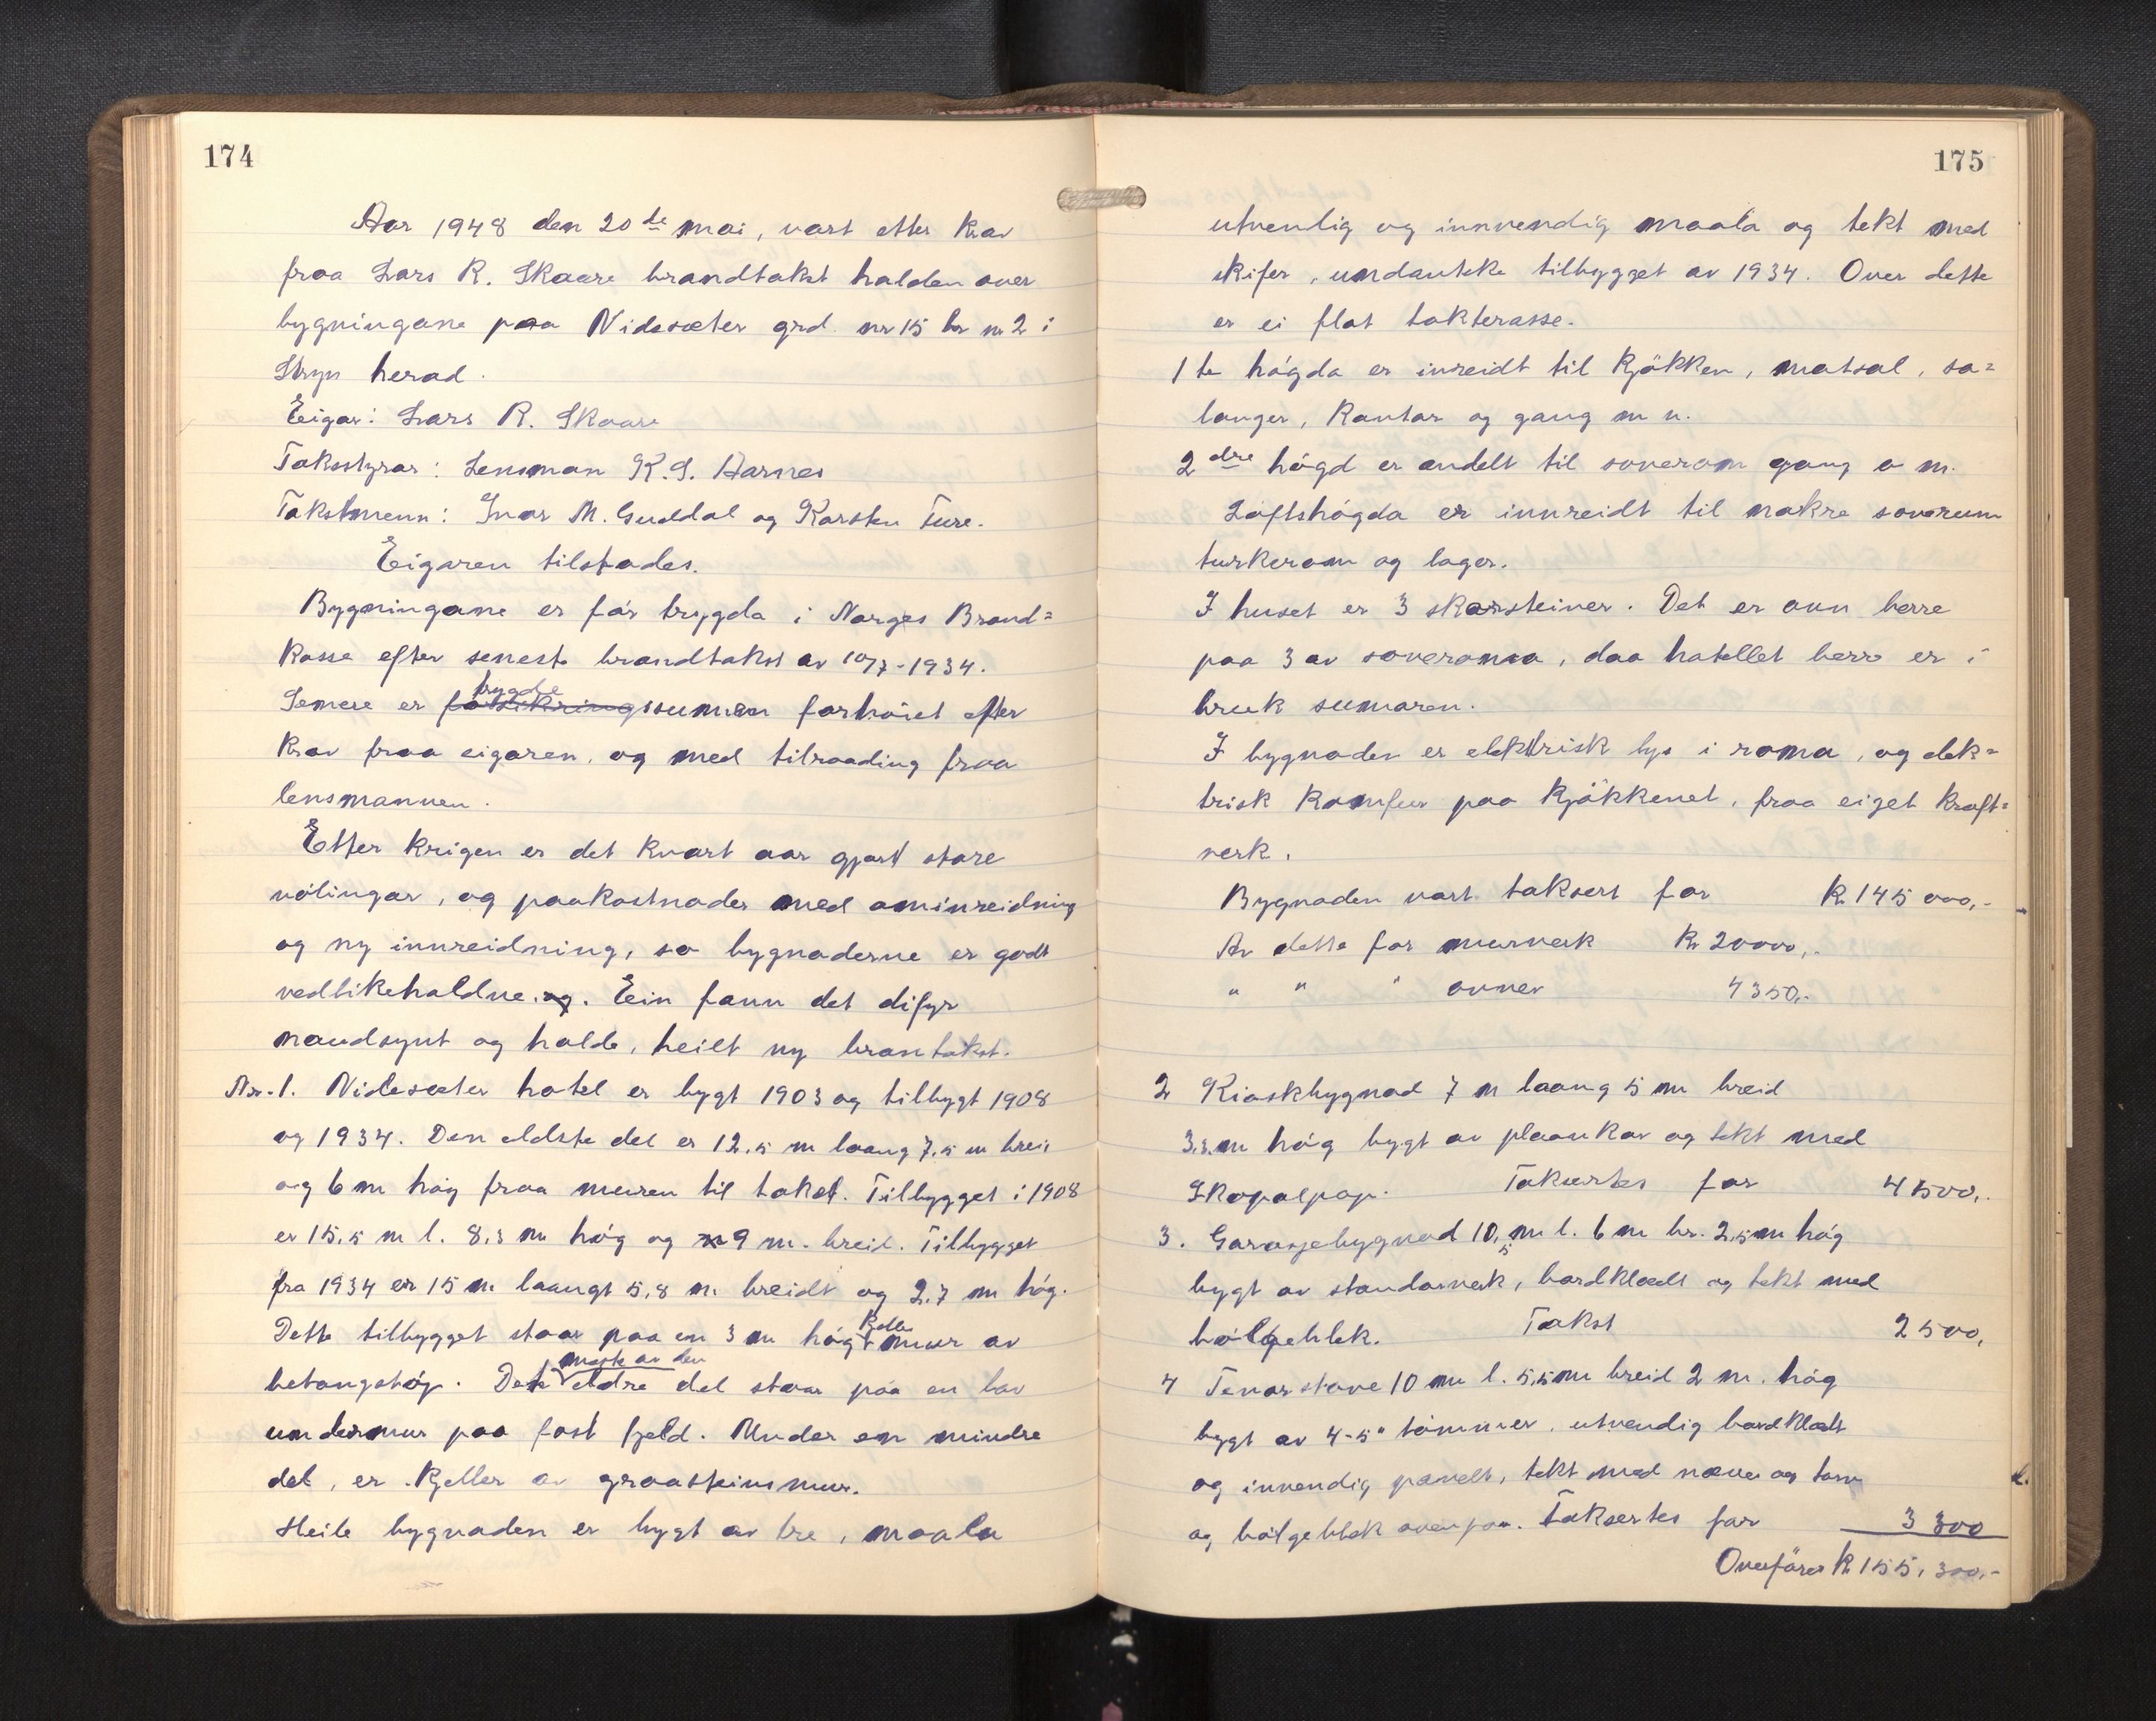 174
Aar 1948 den 20de mai, vart etter krav
fraa Lars R. Skaare brandtakst halden over
bygningane paa Videsæter grd. nr 15 br nr 2 i
Stryn herad.
Eigar: Lars R. Skaare
Takstyrar: Lensman K. S. Aarnes
Takstmenn: Ivar M. Guddal og Karsten Ture.
Eigaren tilstades.
Bygningane er før trygda i Norges Brand=
kasse efter seneste brandtakst av 10/7-1934.
trygde
Senere er forsikringssummen forhöiet efter
krav fraa eigaren, og med tilraading fraa
lensmannen.
Etter krigen er det kvart aar gjort store
vølingar, og paakostnader med ominreidning
og ny innreidning, so bygnaderne er godt
vedlikehaldne. og. Ein fann det difyr
naudsynt og halde, heilt ny brantakst.
Nr. 1. Videsæter hotel er bygt 1903 og tilbygt 1908
og 1934. Den eldste del er 12.5 m laang 7.5 m brei
og 6 m høg fraa muren til taket. Tilbygget i 1908
er 15,5 m l. 8,3 m høg og 9 m. breid. Tilbygget
fra 1934 er 15 m laangt 5,8 m. breidt og 2.7 m høg.
kjeller
Dette tilbygget staar paa en 3 m høg mur av
meste av den
betongstøp. Det eldre del staar paa en lav
undermur paa fast fjeld. Under en mindre
del, er kjeller av graasteinsmur.
Heile bygnaden er bygt av tre, maala
175
utvendig og innvendig maala og tekt med
skifer, undanteke tilbygget av 1934. Over dette
er ei flat takterasse.
1te høgda er inreidt til kjøkken, matsal, sa=
longer, kontor og gang m. n.
2dre høgd er endelt til soverom gang o m.
Loftshøgda er innreidt til nokre soverum
turkerom og lager.
I huset er 3 skorsteiner. Det er ovn berre
paa 3 av soveroma, daa hotellet berre er i
bruk sumaren.
I bygnaden er elektrisk lys i roma, og elek=
trisk komfur paa kjøkkenet, fraa eiget kraft=
verk.
Bygnaden vart taksert for Kr. 145 000,-
Av dette for murverk Kr 20000,-
" " " ovner 4350,-
2 Kioskbygnad 7 m laang 5 m breid
3,3. m høg bygt av plankar og tekt med
Skopalpap. Taksertes for 4500,-
3. Garasjebygnad 10,5 m l. 6 m br. 2,5 m høg
bygt av standarverk, bordklædt og tekt med
bølgeblek. Takst 2500,
4 Tenarstove 10 m l. 5,5 m breid 2 m. høg
bygt av 4-5" tømmer, utvendig bordklædt
og innvendig panelt, tekt med næver og torv
og bølgeblek ovenpaa. Taksertes for 3300
Overføres Kr 155,300,-